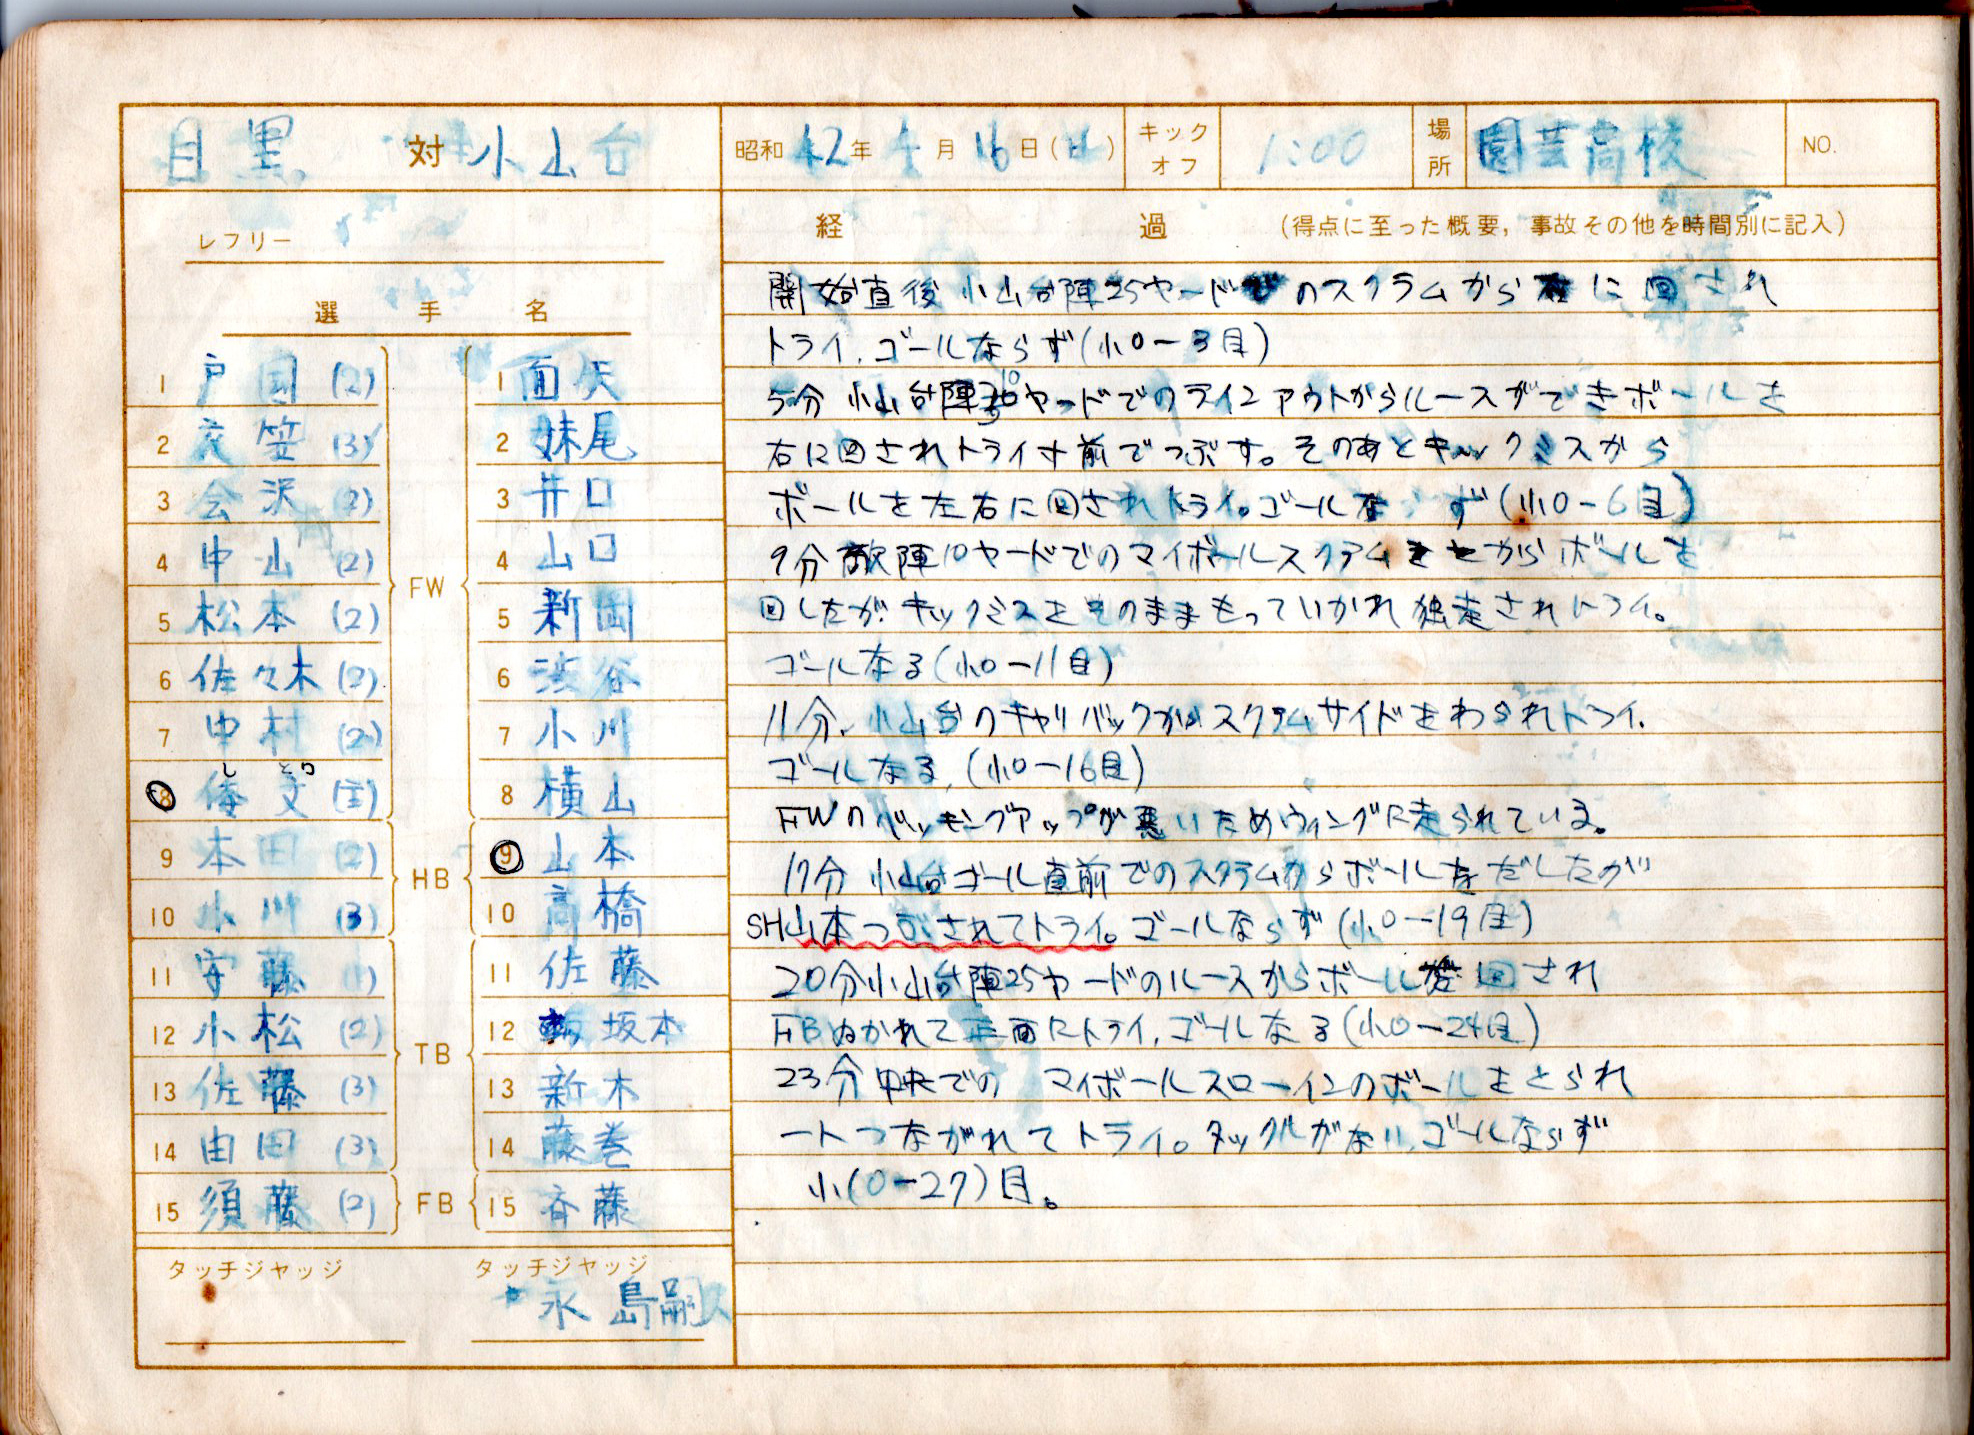 目黒 対 小山台
昭和42年 月16日(日) キックオフ 1:00 場所 園芸高校 NO.
レフリー
経過 (得点に至った概要,事故その他を時間別に記入)
選手名
1 戸国 (2) 1 面矢
2 衣笠 (3) 2 妹尾
3 会沢 (2) 3 井口
4 中山 (2) 4 山口
5 松本 (2) FW 5 新岡
6 佐々木 (2) 6 渋谷
7 中村 (2) 7 小川
しとり
8 倭文 (主) 8 横山
9 本田 (2) HB 9 山本
10 小川 (3) 10 高橋
11 安藤 (1) 11 佐藤
12 小松 (2) TB 12 坂本
13 佐藤 (3) 13 新木
14 由田 (3) 14 藤巻
15 須藤 (2) FB 15 斉藤
タッチジャッジ タッチジャッジ
永島嗣久
開始直後 小山台陣25ヤードのスクラムから右に回され
トライ.ゴールならず(小0-3目)
5分 小山台陣10ヤードでのラインアウトからルースができボールを
右に回されトライ寸前でつぶす。そのあとキックミスから
ボールを左右に回されトライ。ゴールならず(小0-6目)
9分 敵陣10ヤードでのマイボールスクラムからボールを
回したがキックミスをそのままもっていかれ独走されトライ。
ゴールなる(小0-11目)
11分.小山台のキャリバックからスクラムサイドをわられトライ.
ゴールなる.(小0-16目)
FWのバッキングアップが悪いためウィングに走られている。
17分 小山台ゴール直前でのスクラムからボールをだしたが
SH山本つぶされてトライ。ゴールならず(小0-19目)
20分小山台陣25ヤードのルースからボール回され
FBぬかれて正面にトライ.ゴールなる(小0-24目)
23分中央での マイボールスローインのボールをとられ
一トつながれてトライ。タックルがない.ゴールならず
小(0-27)目。